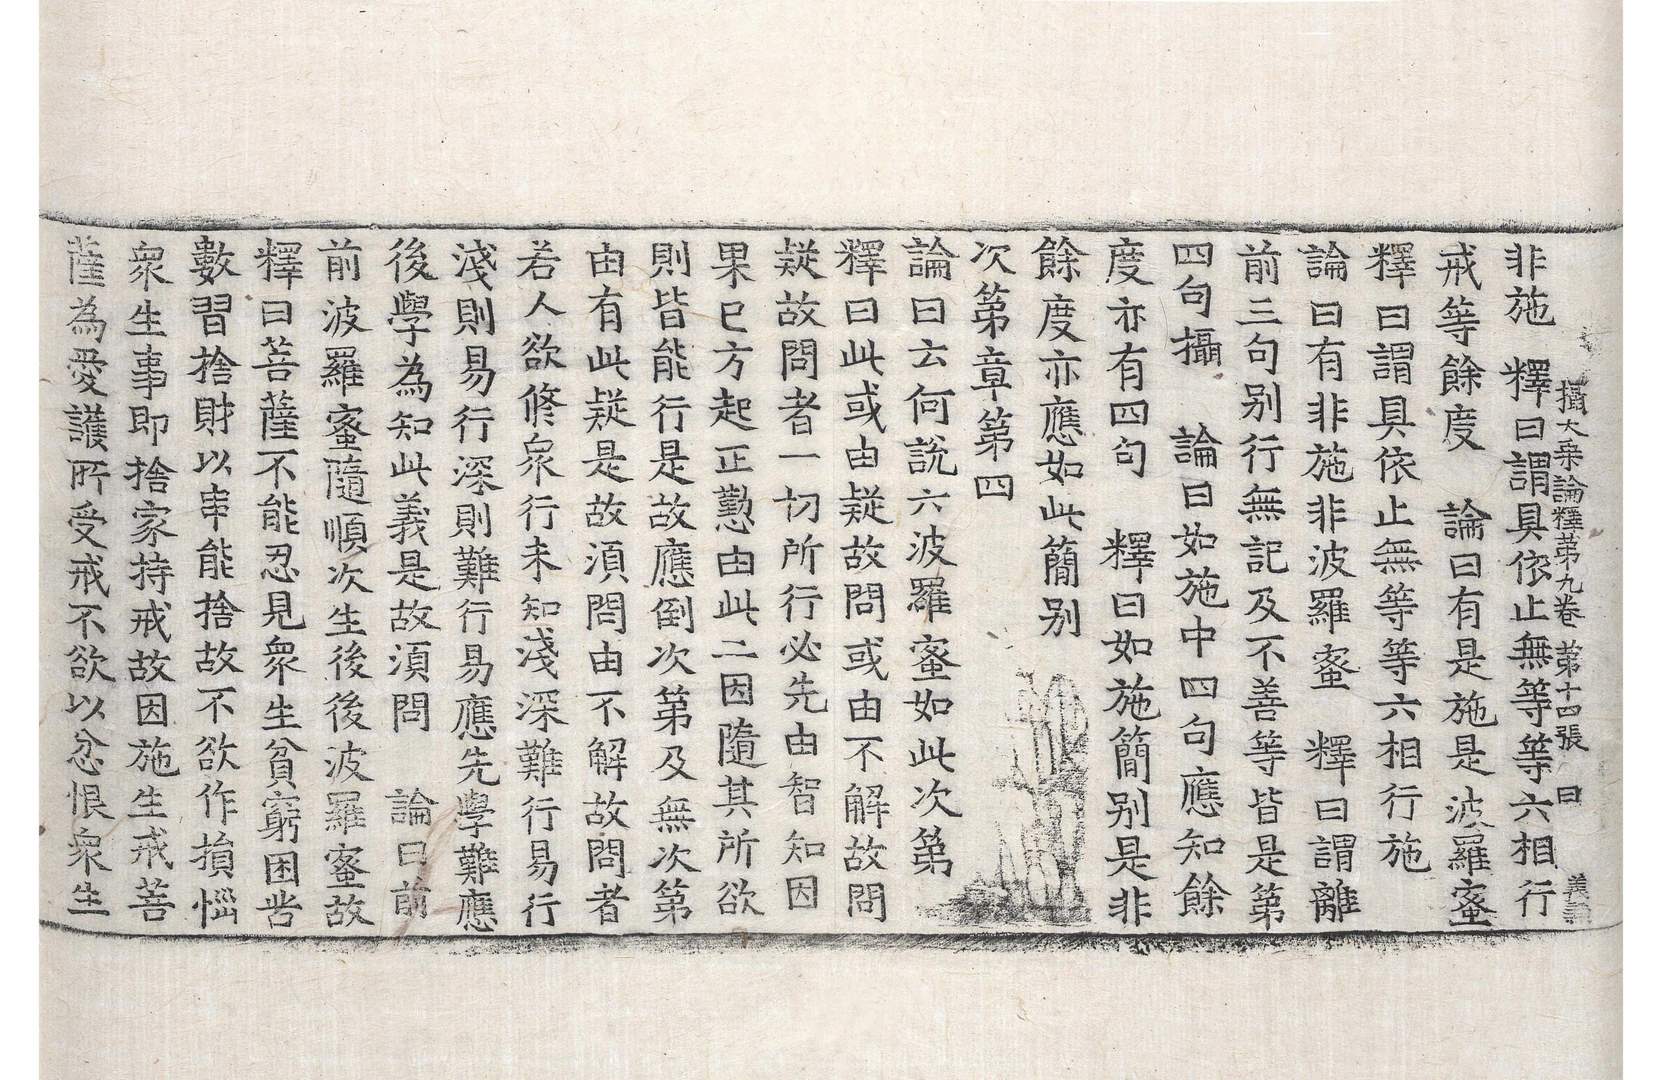 攝大乗論釋苐九卷 苐十四張 曰 義
非施 釋曰謂具依止無等等六相行
戒等餘度 論曰有是施是波羅蜜
釋曰謂具依止無等等六相行施
論曰有非施非波羅蜜 釋曰謂離
前三句别行無記及不善等皆是第
四句攝 論曰如施中四句應知餘
度亦有四句 釋曰如施簡别是非
餘度亦應如此簡别
次第章第四
論曰云何說六波羅蜜如此次第
釋曰此或由疑故問或由不解故問
疑故問者一切所行必先由智知因
果已方起正懃由此二因隨其所欲
則皆能行是故應倒次第及無次第
由有此疑是故湏問由不解故問者
若人欲修衆行未知淺深難行易行
淺則易行深則難行易應先學難應
後學為知此義是故湏問 論曰前
前波羅蜜隨順次生後後波羅蜜故
釋曰菩薩不能忍見衆生貧窮困苦
數習捨財以串能捨故不欲作損惱
衆生事即捨家持戒故因施生戒菩
薩為愛護所受戒不欲以忿恨衆生